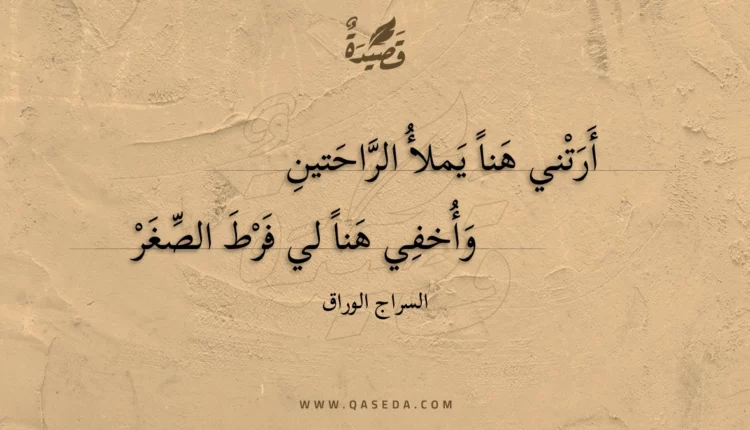 قَصِيدَةٌ
أَرَتْني هَناً يَملأُ الرَّاحَتينِ
وَأُخفِي هَناً لي فَرْطَ الصِّغَرْ
السراج الوراق
WWW.QASEDA.COM